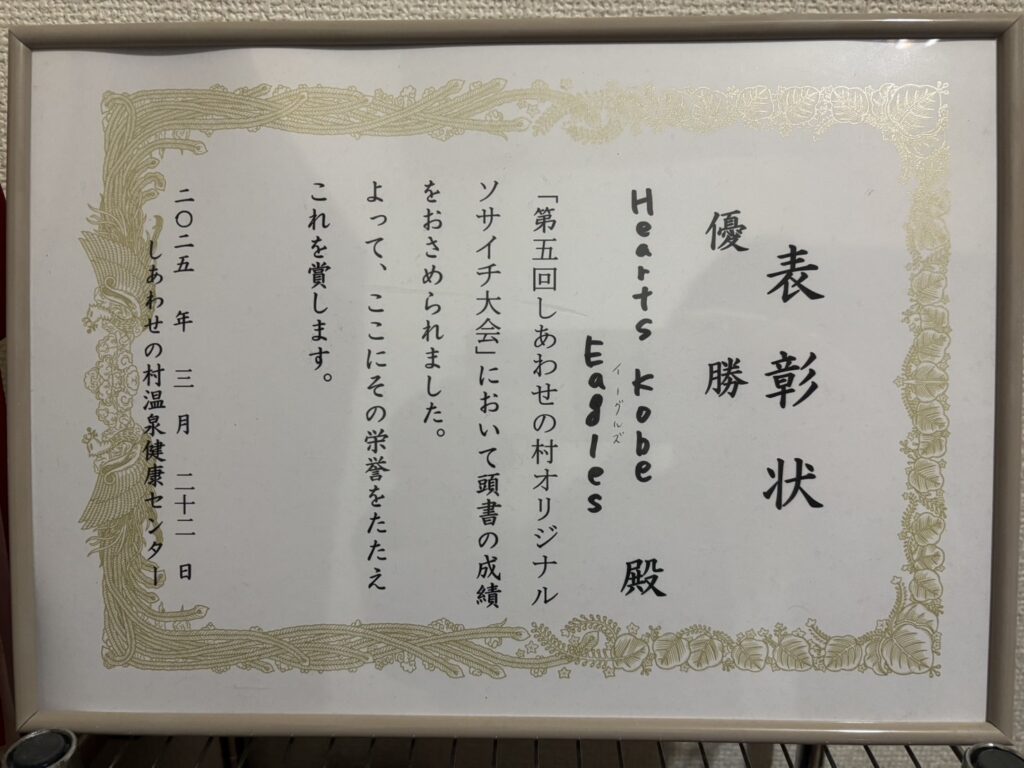 表彰状
優勝
Hearts Kobe
Eagles
イーグルズ
殿
「第五回しあわせの村オリジナル
ソサイチ大会」において頭書の成績
をおさめられました。
よって、ここにその栄誉をたたえ
これを賞します。
二〇二五年三月二十二日
しあわせの村温泉健康センター